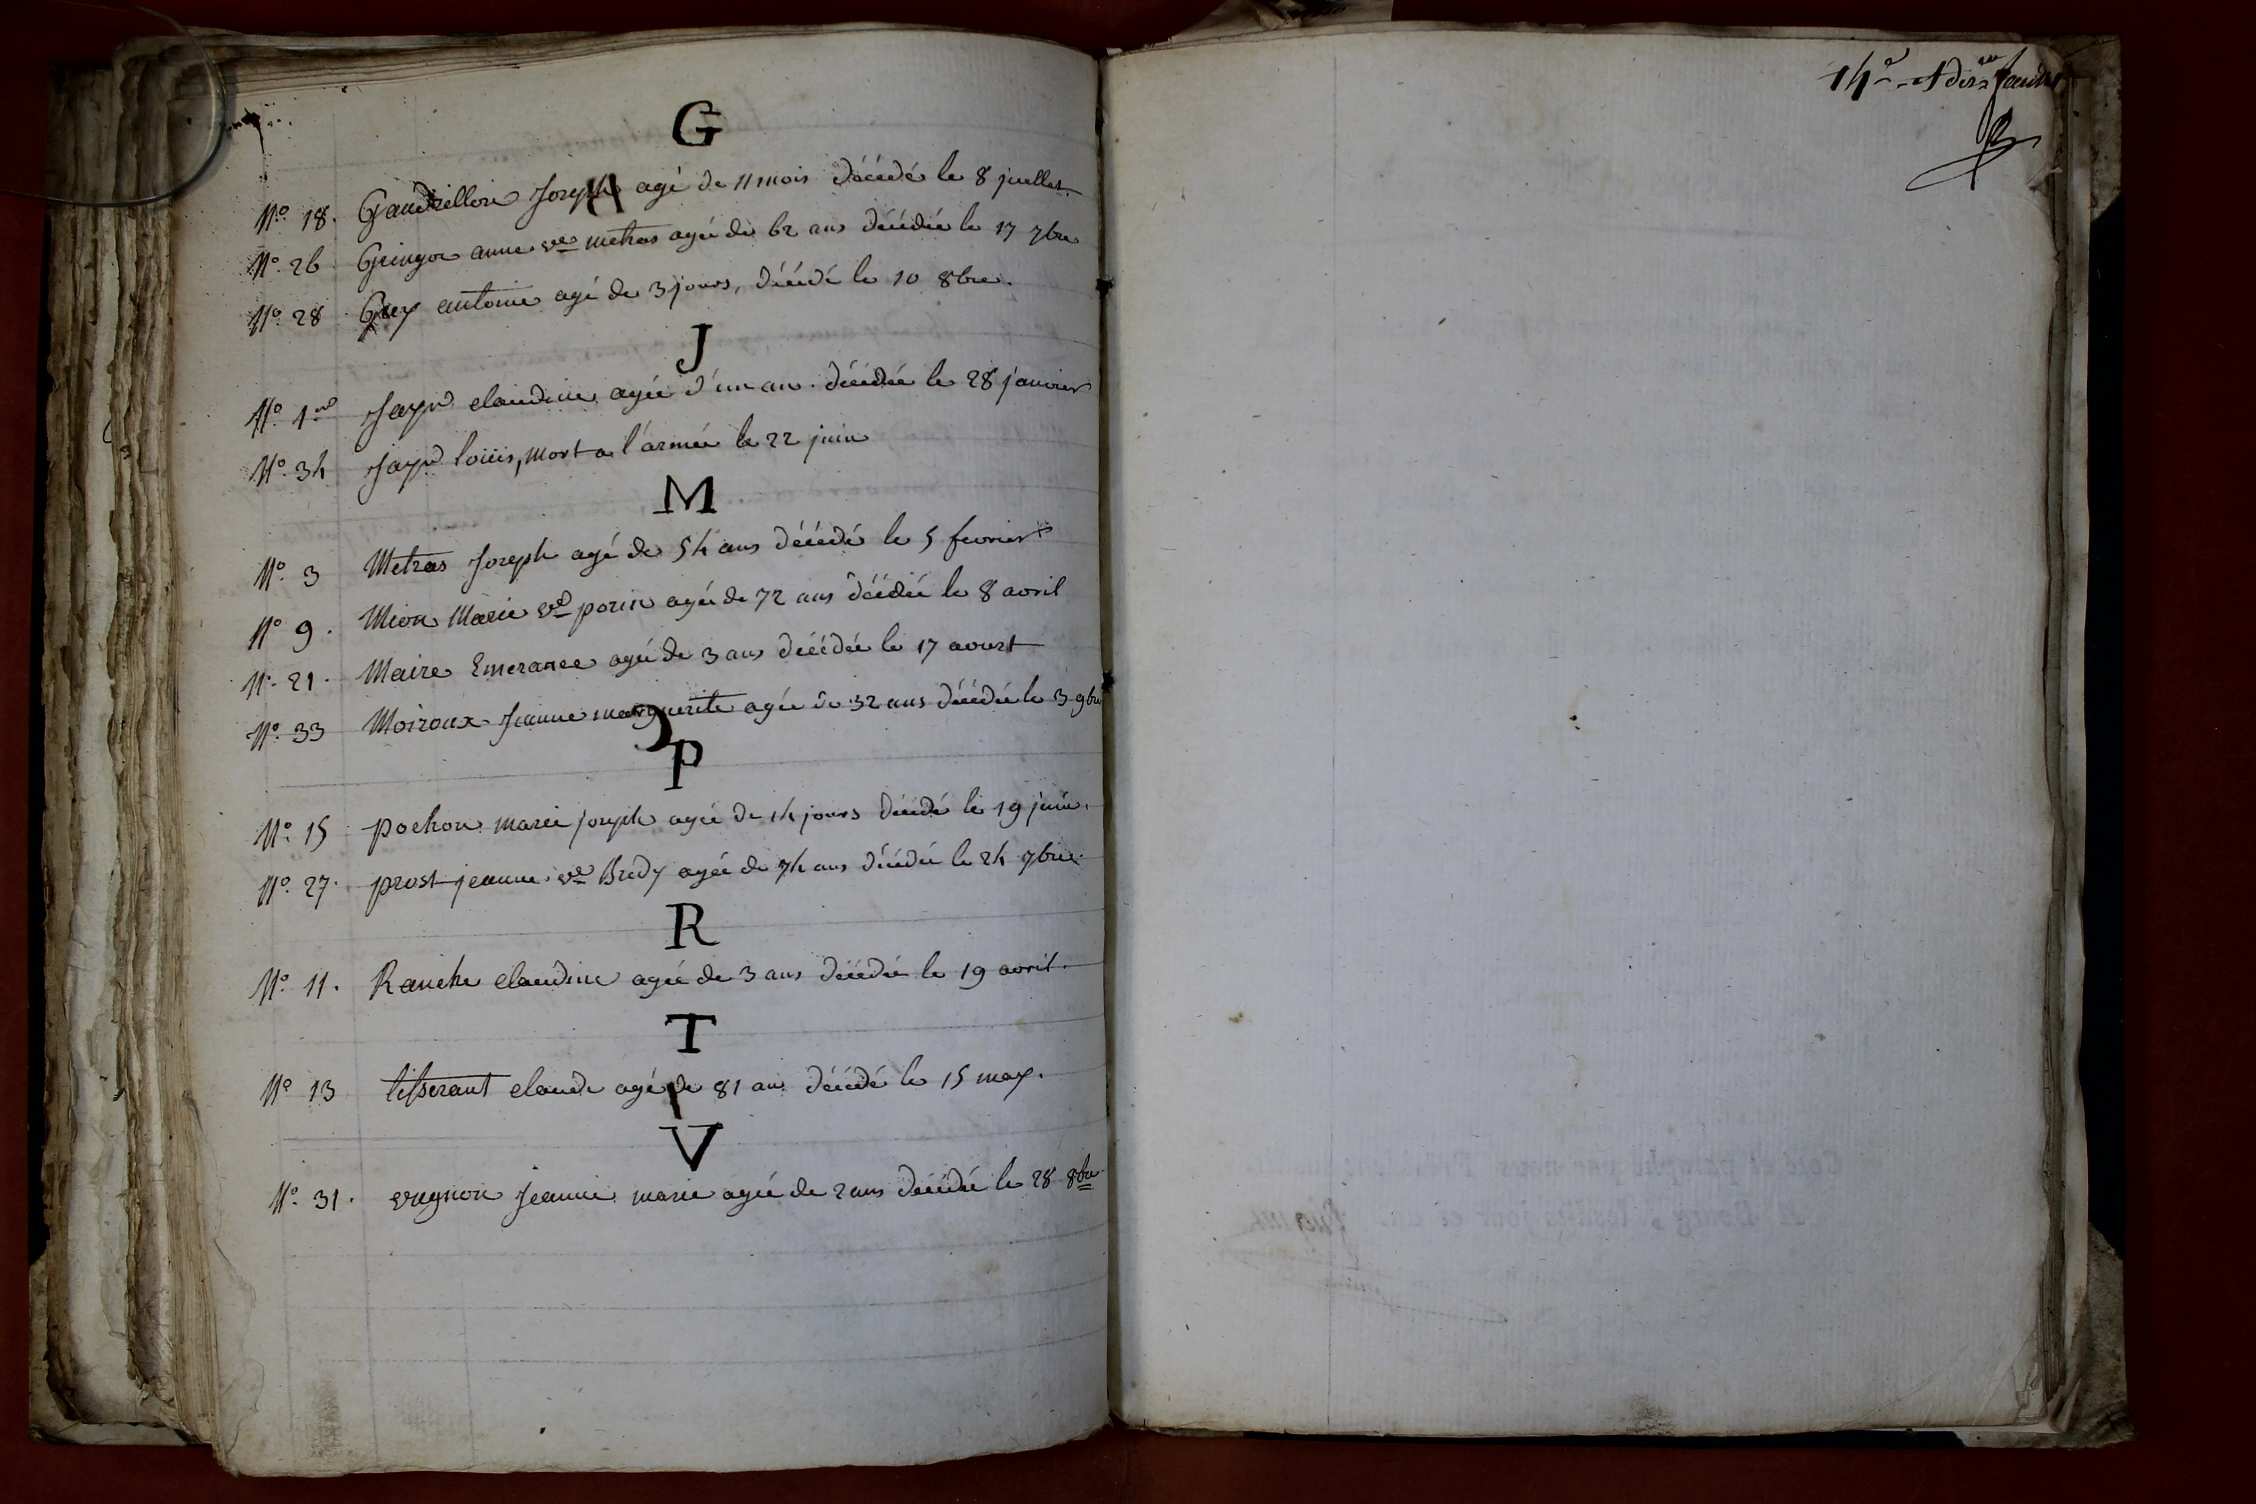 G
N.º 18. Gaudillon Joseph agé de 11 mois décédé le 8 juillet.
N.º 26 Gringoz anne v.e metras agée de 62 ans décédée le 17 7bre
N.º 28 Guy antoine agé de 3 jours, décédé le 10 8bre.
J
N.º 1.er Jayr claudine agée d'un an. décédée le 28 janvier
N.º 34 Jayr loüis, Mort a l'armée le 22 juin
M
N.º 3 Metras Joseph agé de 54 ans décédé le 5 fevrier
N.º 9. Mion Marie v.e porin agée de 72 ans décédée le 8 avril
N.º 21. Maire Emerance agée de 3 ans décédée le 17 aoust
N.º 33 Moiroux Jeanne marguerite agée de 32 ans décédée le 3 9bre
P
N.º 15 pochon marie joseph agée de 14 jours décédé le 19 juin.
N.º 27. prost jeanne v.e Bredy agée de 74 ans décédée le 24 7bre.
R
N.º 11. Ranche claudine agée de 3 ans décédée le 19 avril.
T
N.º 13 tisserant claude agé de 81 ans décédé le 15 may.
V
N.º 31. vugnon Jeanne marie agée de 2 ans décédée le 28 8bre
14e et der